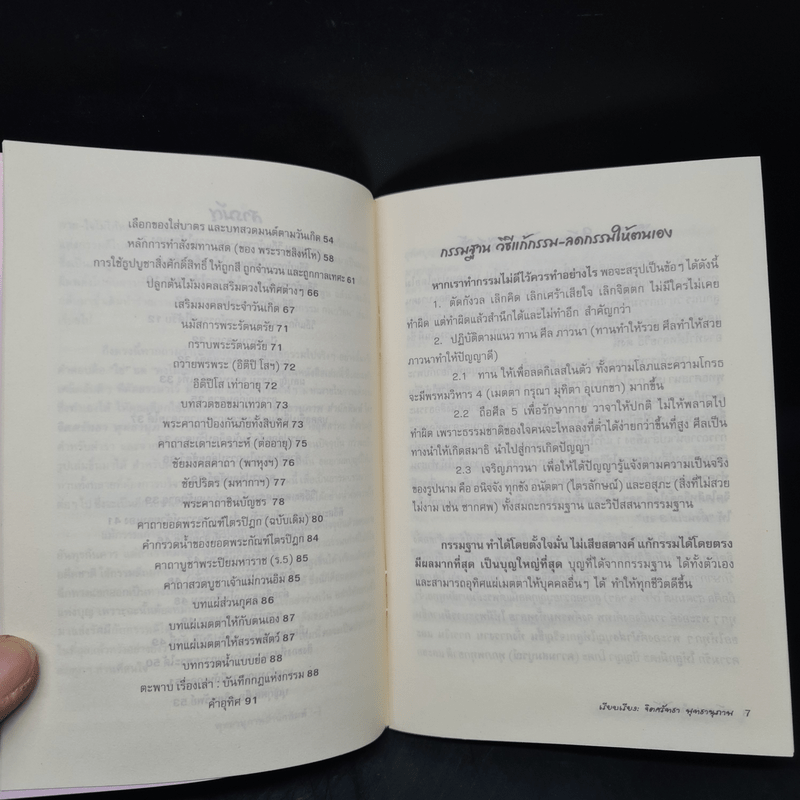 เลือกของใส่บาตร และบทสวดมนต์ตามวันเกิด 54
หลักการทำสังฆทานสด (ของ พระราชสิงห์โท) 58
การใช้ธูปบูชาสิ่งศักดิ์สิทธิ์ ให้ถูกสี ถูกจำนวน และถูกกาลเทศะ 61
ปลูกต้นไม้มงคลเสริมดวงในทิศต่างๆ 66
เสริมมงคลประจำวันเกิด 67
นมัสการพระรัตนตรัย 71
กราบพระรัตนตรัย 71
ถวายพรพระ (อิติปิ โสฯ) 72
อิติปิโส เท่าอายุ 72
บทสวดขอขมาเทวดา 73
พระคาถาป้องกันภัยทั้งสิบทิศ 73
คาถาสะเดาะเคราะห์ (ต่ออายุ) 75
ชัยมงคลคาถา (พาหุงฯ) 76
ชัยปริตร (มหากาฯ) 77
พระคาถาชินบัญชร 78
คาถายอดพระกัณฑ์ไตรปิฎก (ฉบับเดิม) 80
คำกรวดน้ำของยอดพระกัณฑ์ไตรปิฎก 84
คาถาบูชาพระปิยมหาราช (ร.5) 85
คาถาสวดบูชาเจ้าแม่กวนอิม 85
บทแผ่ส่วนกุศล 86
บทแผ่เมตตาให้กับตนเอง 87
บทแผ่เมตตาให้สรรพสัตว์ 87
บทกรวดน้ำแบบย่อ 88
ตะพาบ เรื่องเล่า : บันทึกกฎแห่งกรรม 88
คำอุทิศ 91
กรรมฐาน วิธีแก้กรรม-ลดกรรมให้ตนเอง
หากเราทำกรรมไม่ดีไว้ควรทำอย่างไร พอจะสรุปเป็นข้อๆ ได้ดังนี้
1. ตัดกังวล เลิกคิด เลิกเศร้าเสียใจ เลิกจิตตก ไม่มีใครไม่เคย
ทำผิด แต่ทำผิดแล้วสำนึกได้และไม่ทำอีก สำคัญกว่า
2. ปฏิบัติตามแนว ทาน ศีล ภาวนา (ทานทำให้รวย ศีลทำให้สวย
ภาวนาทำให้ปัญญาดี)
2.1 ทาน ให้เพื่อลดกิเลสในตัว ทั้งความโลภและความโกรธ
จะมีพรหมวิหาร 4 (เมตตา กรุณา มุทิตา อุเบกขา) มากขึ้น
2.2 ถือศีล 5 เพื่อรักษากาย วาจาให้ปกติ ไม่ให้พลาดไป
ทำผิด เพราะธรรมชาติของใจคนจะไหลลงที่ต่ำได้ง่ายกว่าขึ้นที่สูง ศีลเป็น
ทางนำให้เกิดสมาธิ นำไปสู่การเกิดปัญญา
2.3 เจริญภาวนา เพื่อให้ได้ปัญญารู้แจ้งตามความเป็นจริง
ของรูปนาม คือ อนิจจัง ทุกขัง อนัตตา (ไตรลักษณ์) และอสุภะ (สิ่งที่ไม่สวย
ไม่งาม เช่น ซากศพ) ทั้งสมถะกรรมฐาน และวิปัสสนากรรมฐาน
กรรมฐาน ทำได้โดยตั้งใจมั่น ไม่เสียสตางค์ แก้กรรมได้โดยตรง
มีผลมากที่สุด เป็นบุญใหญ่ที่สุด บุญที่ได้จากกรรมฐาน ได้ทั้งตัวเอง
และสามารถอุทิศแผ่เมตตาให้บุคคลอื่นๆ ได้ ทำให้ทุกชีวิตดีขึ้น
เรียบเรียง: จิตศรัทธา พุทธานุภาพ 7